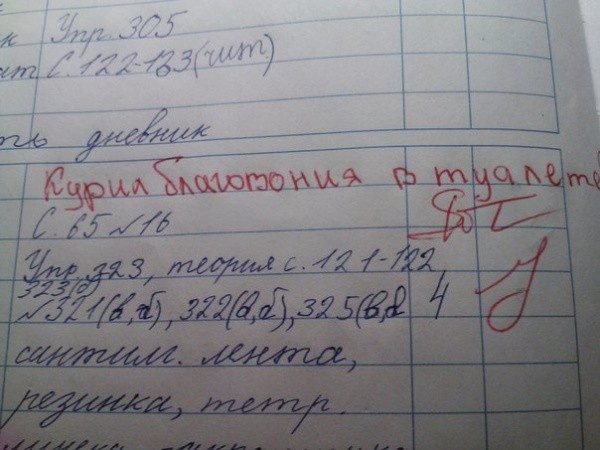 Упр. 305
С. 122-123 (чит)
дневник
Курил благовония в туалете
С. 65 №16
Упр. 323, теория с. 121-122,
323(б)
№321(в,б), 322(в,б), 325(в,б 4
сантим. лента,
резинка, тетр.